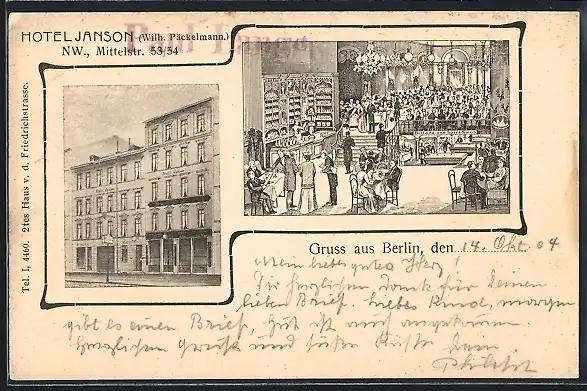 HOTEL JANSON (Wilh. Päckelmann.)
NW., Mittelstr. 53/54
Tel. I, 4460. 2tes Haus v. d. Friedrichstrasse.
Gruss aus Berlin, den 14. Okt. 04
Mein liebes gutes Herz!
Dir herzlichen Dank für Deinen
lieben Brief. Liebes Kind, morgen
gibt es einen Brief, Hut ist auch angekommen.
Herzlichen Gruß und süße Küsse Dein